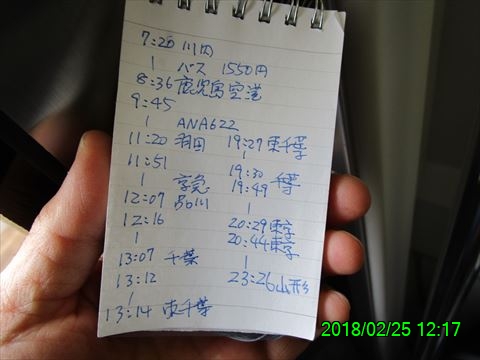 7:20 川内
| バス 1550円
8:36 鹿児島空港
9:45
| ANA622
11:20 羽田
11:51
| 京急
12:07 品川
12:16
|
13:07 千葉
13:12
|
13:14 東千葉
19:27 東千葉
|
19:30 千葉
19:49
|
20:29 東京
20:44 東京
|
23:26 山形
2018/02/25 12:17